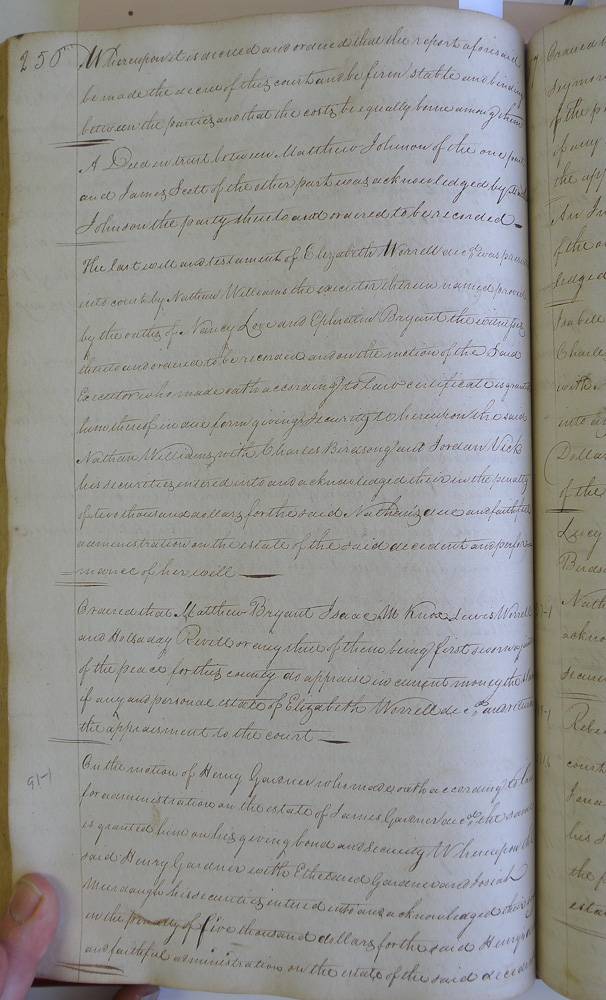 250
Whereupon it is decreed and ordered that the report aforesaid
be made the decree of this court and be firm stable and binding
between the parties and that the costs be equally borne among them
A Deed in trust between Matthew Johnson of the one part
and James Scott of the other part was acknowledged by
Johnson the party thereto and ordered to be recorded
The last will and testament of Elizabeth Worrell decd. was
into court by Nathan Williams the executor therein named proved
by the oaths of Nancy Love and Ephratim Bryant the witnesses
thereto and ordered to be recorded and on the motion of the said
Executor who made oath according to law certificate is granted
him thereof in due form giving security Whereupon the said
Nathan Williams with Charles Birdsong and Jordan Vick
his securities entered into and acknowledged their in the penalty
of two thousand dollars for the said Nathan's due and faithful
administration on the estate of the said decedent and perfor
mance of her will
Ordered that Matthew Bryant Isaac M Knox Lewis Worrell
and Holladay Revell or any three of them being first sworn
of the peace for this county do appraise in current money the
if any and personal estate of Elizabeth Worrell decd. and return
the appraisment to the court
91-1
On the motion of Henry Gardner who made oath according to law
for administration on the estate of James Gardner decd. the same
is granted him on his giving bond and security Whereupon the
said Henry Gardner with Etheldred Gardner and Josiah
Murdaugh his securities entered into and acknowledged their
in the penalty of five thousand dollars for the said Henry's
and faithful administration on the estate of the said decedent
Ordered
Seymore
of the
of any
the app
An In
of the
ledged
Isabell
Charles
with
into
Dollars
of the
Lucy
Birds
Nath
ackno
secur
Rebe
court
his s
the
esta